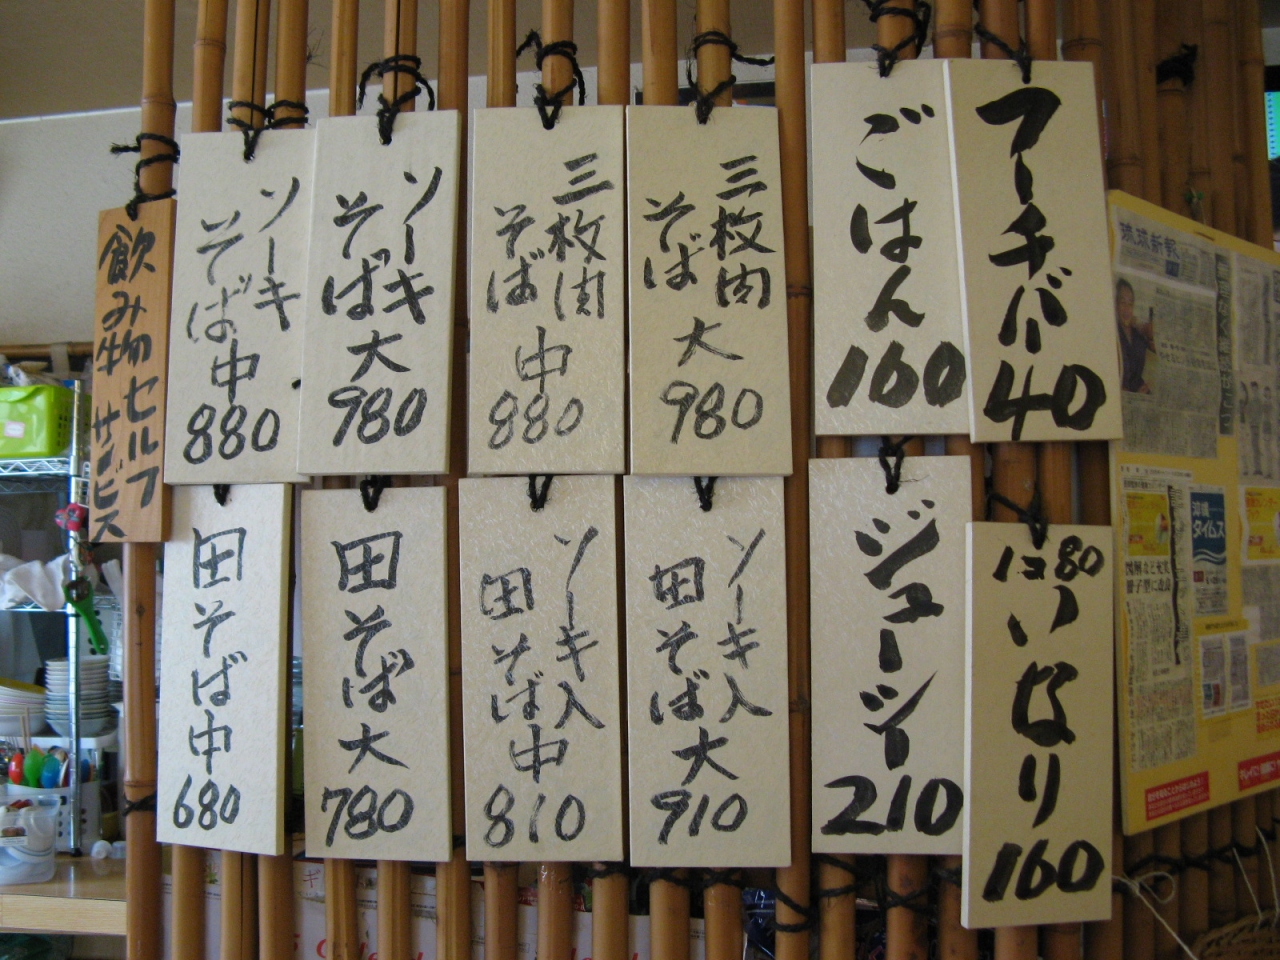 飲み物セルフ
サービス
ソーキ
そば
中
880
ソーキ
そば
大
980
三枚肉
そば
中
880
三枚肉
そば
大
980
ごはん
160
フーチバー
40
田そば中
680
田そば大
780
ソーキ入
田そば
中
810
ソーキ入
田そば
大
910
ジューシー
210
1コ80
いなり
160
琉球新報
沖縄
タイムス